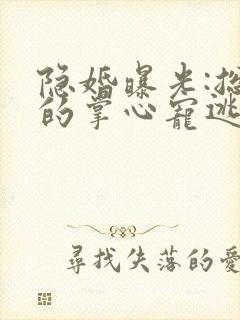 隐婚曝光:
的掌心宠逃
尋找失落的愛